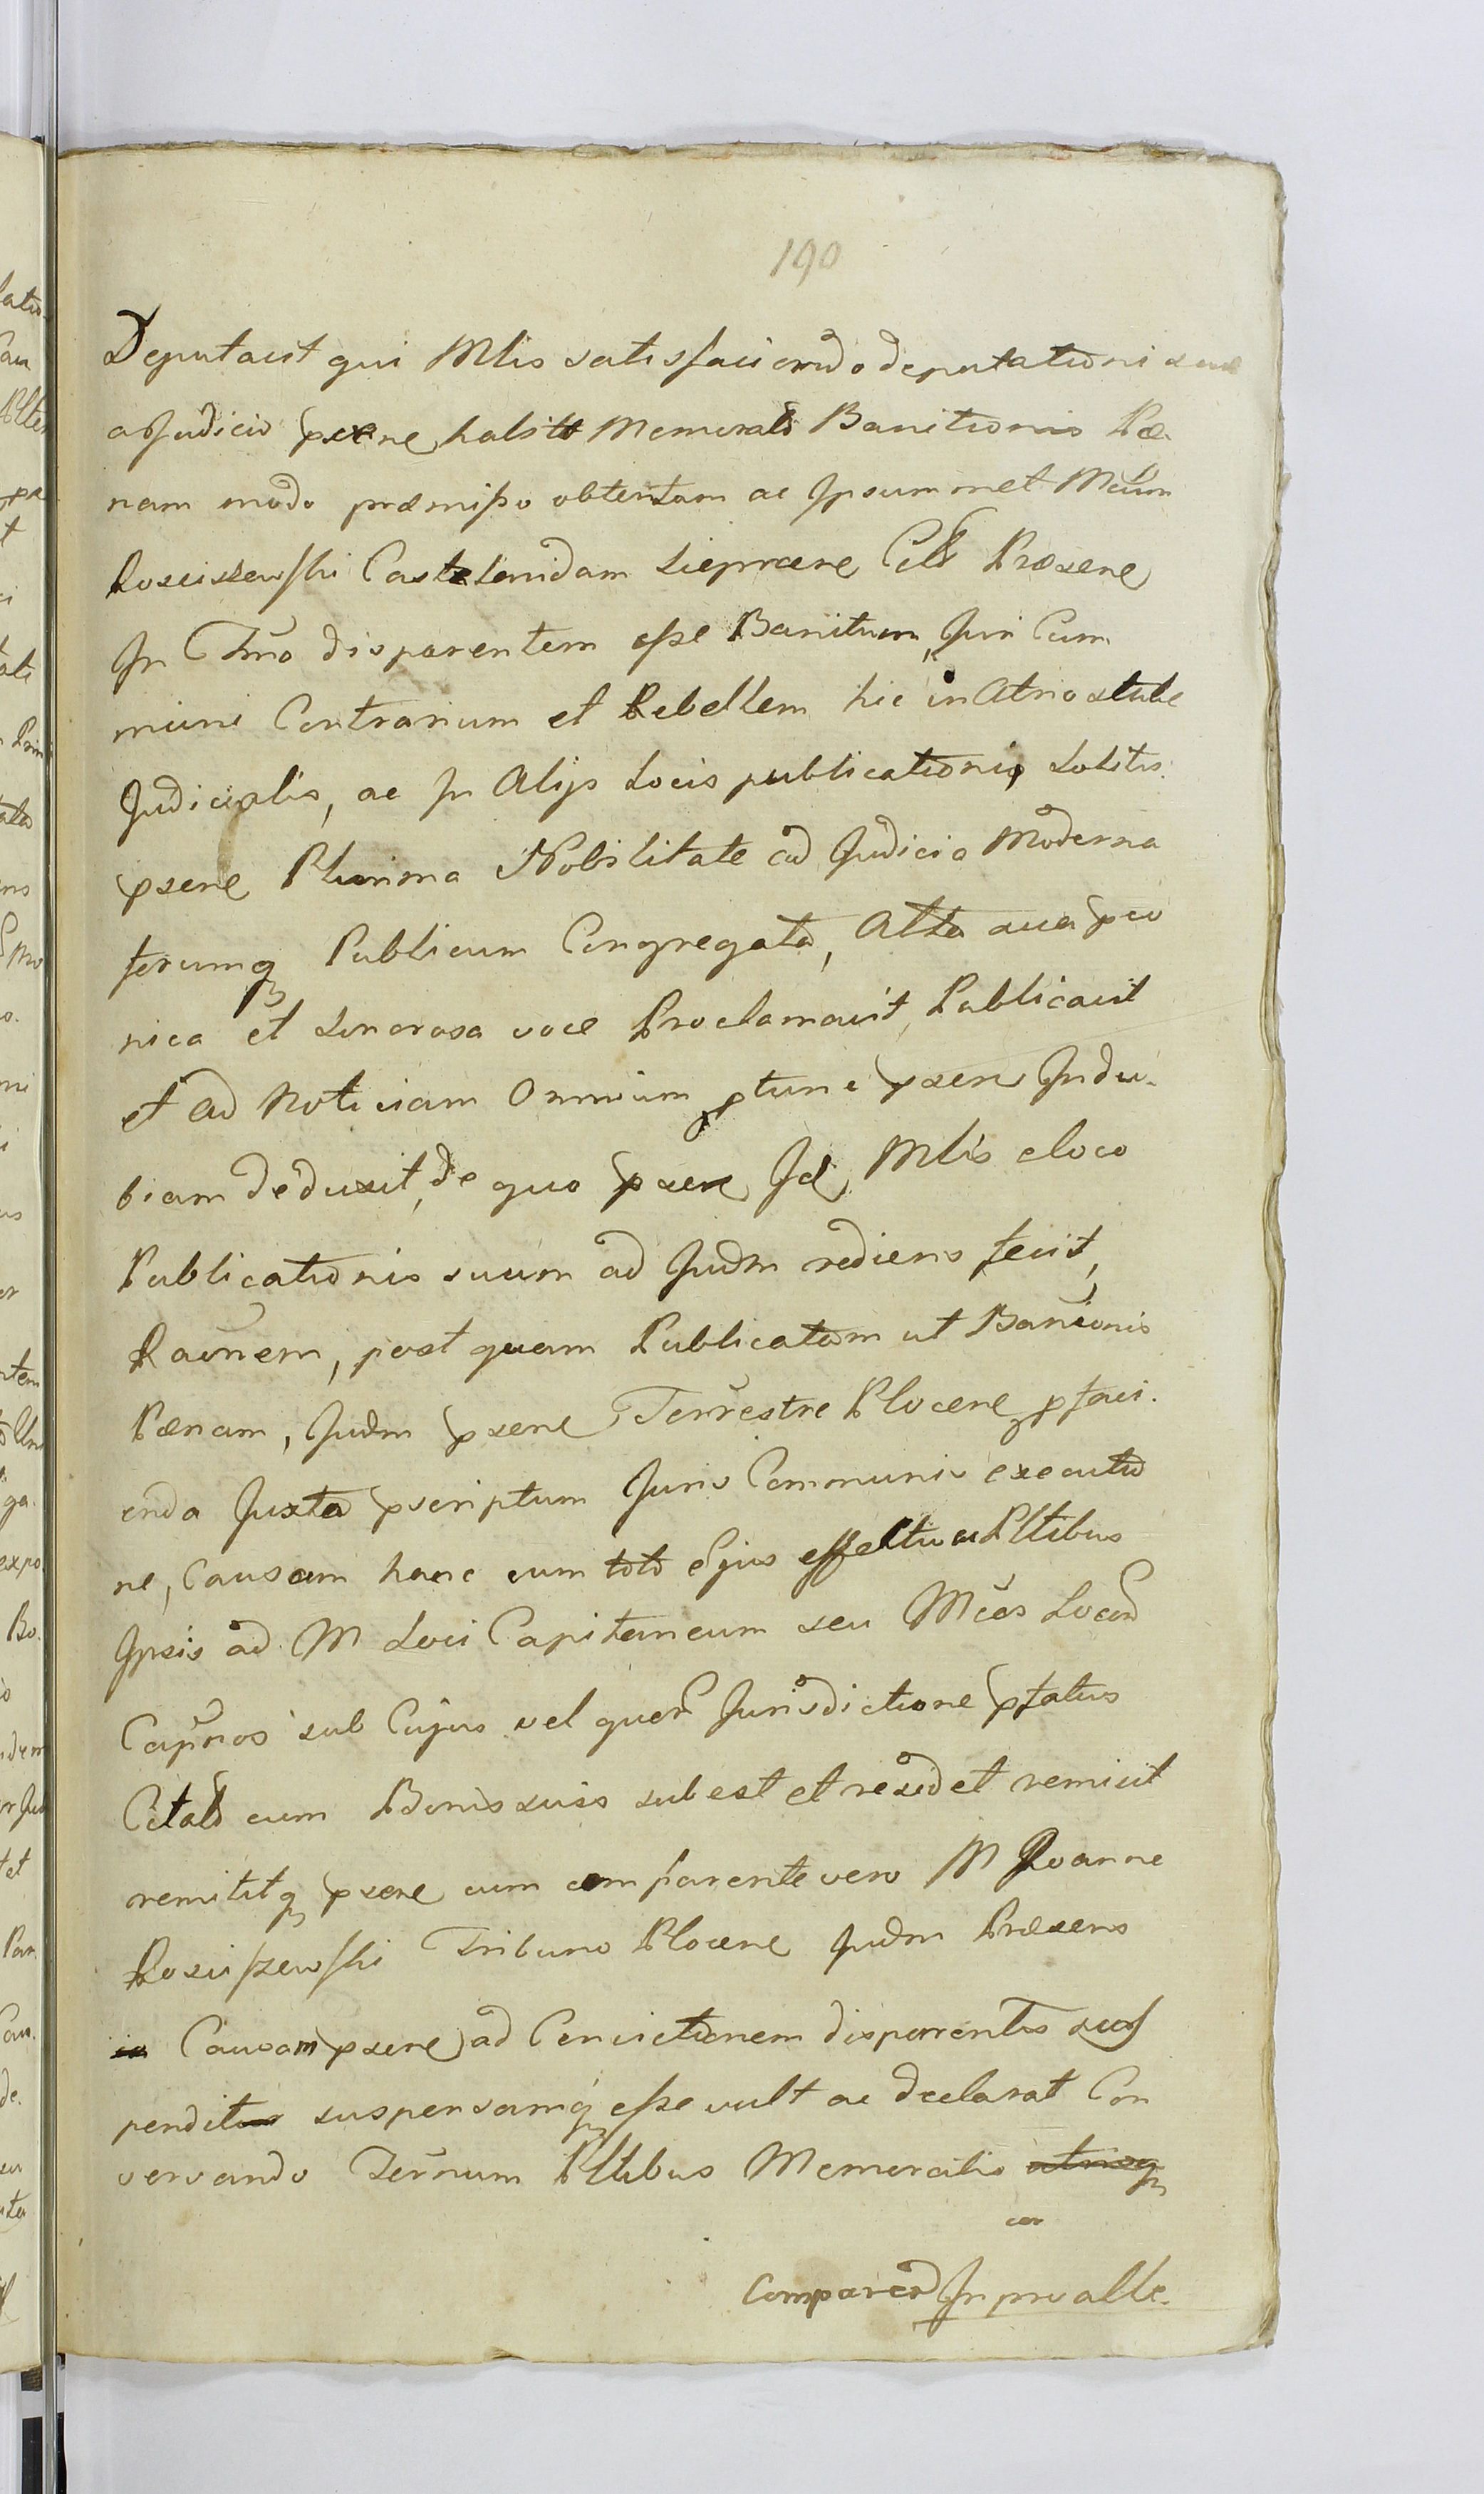 190
Deputavit qui Mlis satisfaciendo deputationi suæ
a Judicio pxsne habitæ Memorato Banitionis Pæ-
nam modo præmisso obtentam ac Ipsummet Mcum
Rosciszewski Castellanidam Sieprcene Citt Præsene
In Tmo disparentem esse Banitum, Juri Com
muni Contrarium et Rebellem hic in Atrio Stubæ
Judicialis, ac In Alijs Locis publicationis Solitis
pxsene Plurima Nobilitate ad Judicia Moderna
forumq Publicum Congregata, Alta ava pco
nica et Sonorosa voce Proclamavit, Publicavit
et ad Noticiam Omnium ptunc pxsen Indu-
biam deduxit, de quo pxsene Id Mlis e loco
Publicationis suum ad Judm rediens fecit,
Raõnem, post quam Publicatam ut Banionis
Pænam, Judm pxsene Terrestre Plocene pfaci-
enda Juxta pscriptum Juris Communis executio
ne, Causam hanc cum toto Ejus effectu ac Pttibus
Ipsis ad M Loci Capitaneum seu Mcos Locor
Capnos sub Cujus vel quor Jurisdictione pfatus
Citatt cum Bonis suis subest et residet remisit
remititq pxsene cum comparente vero M Joanne
Rosciszewski Tribuno Plocene Judm Præsens
in Causam pxsene ad Convictionem disparentis sus
pendit suspensamq esse vult ac declarat Con
servando Ternum Pttibus Memoratis utrisq
Comparen In pro alle.